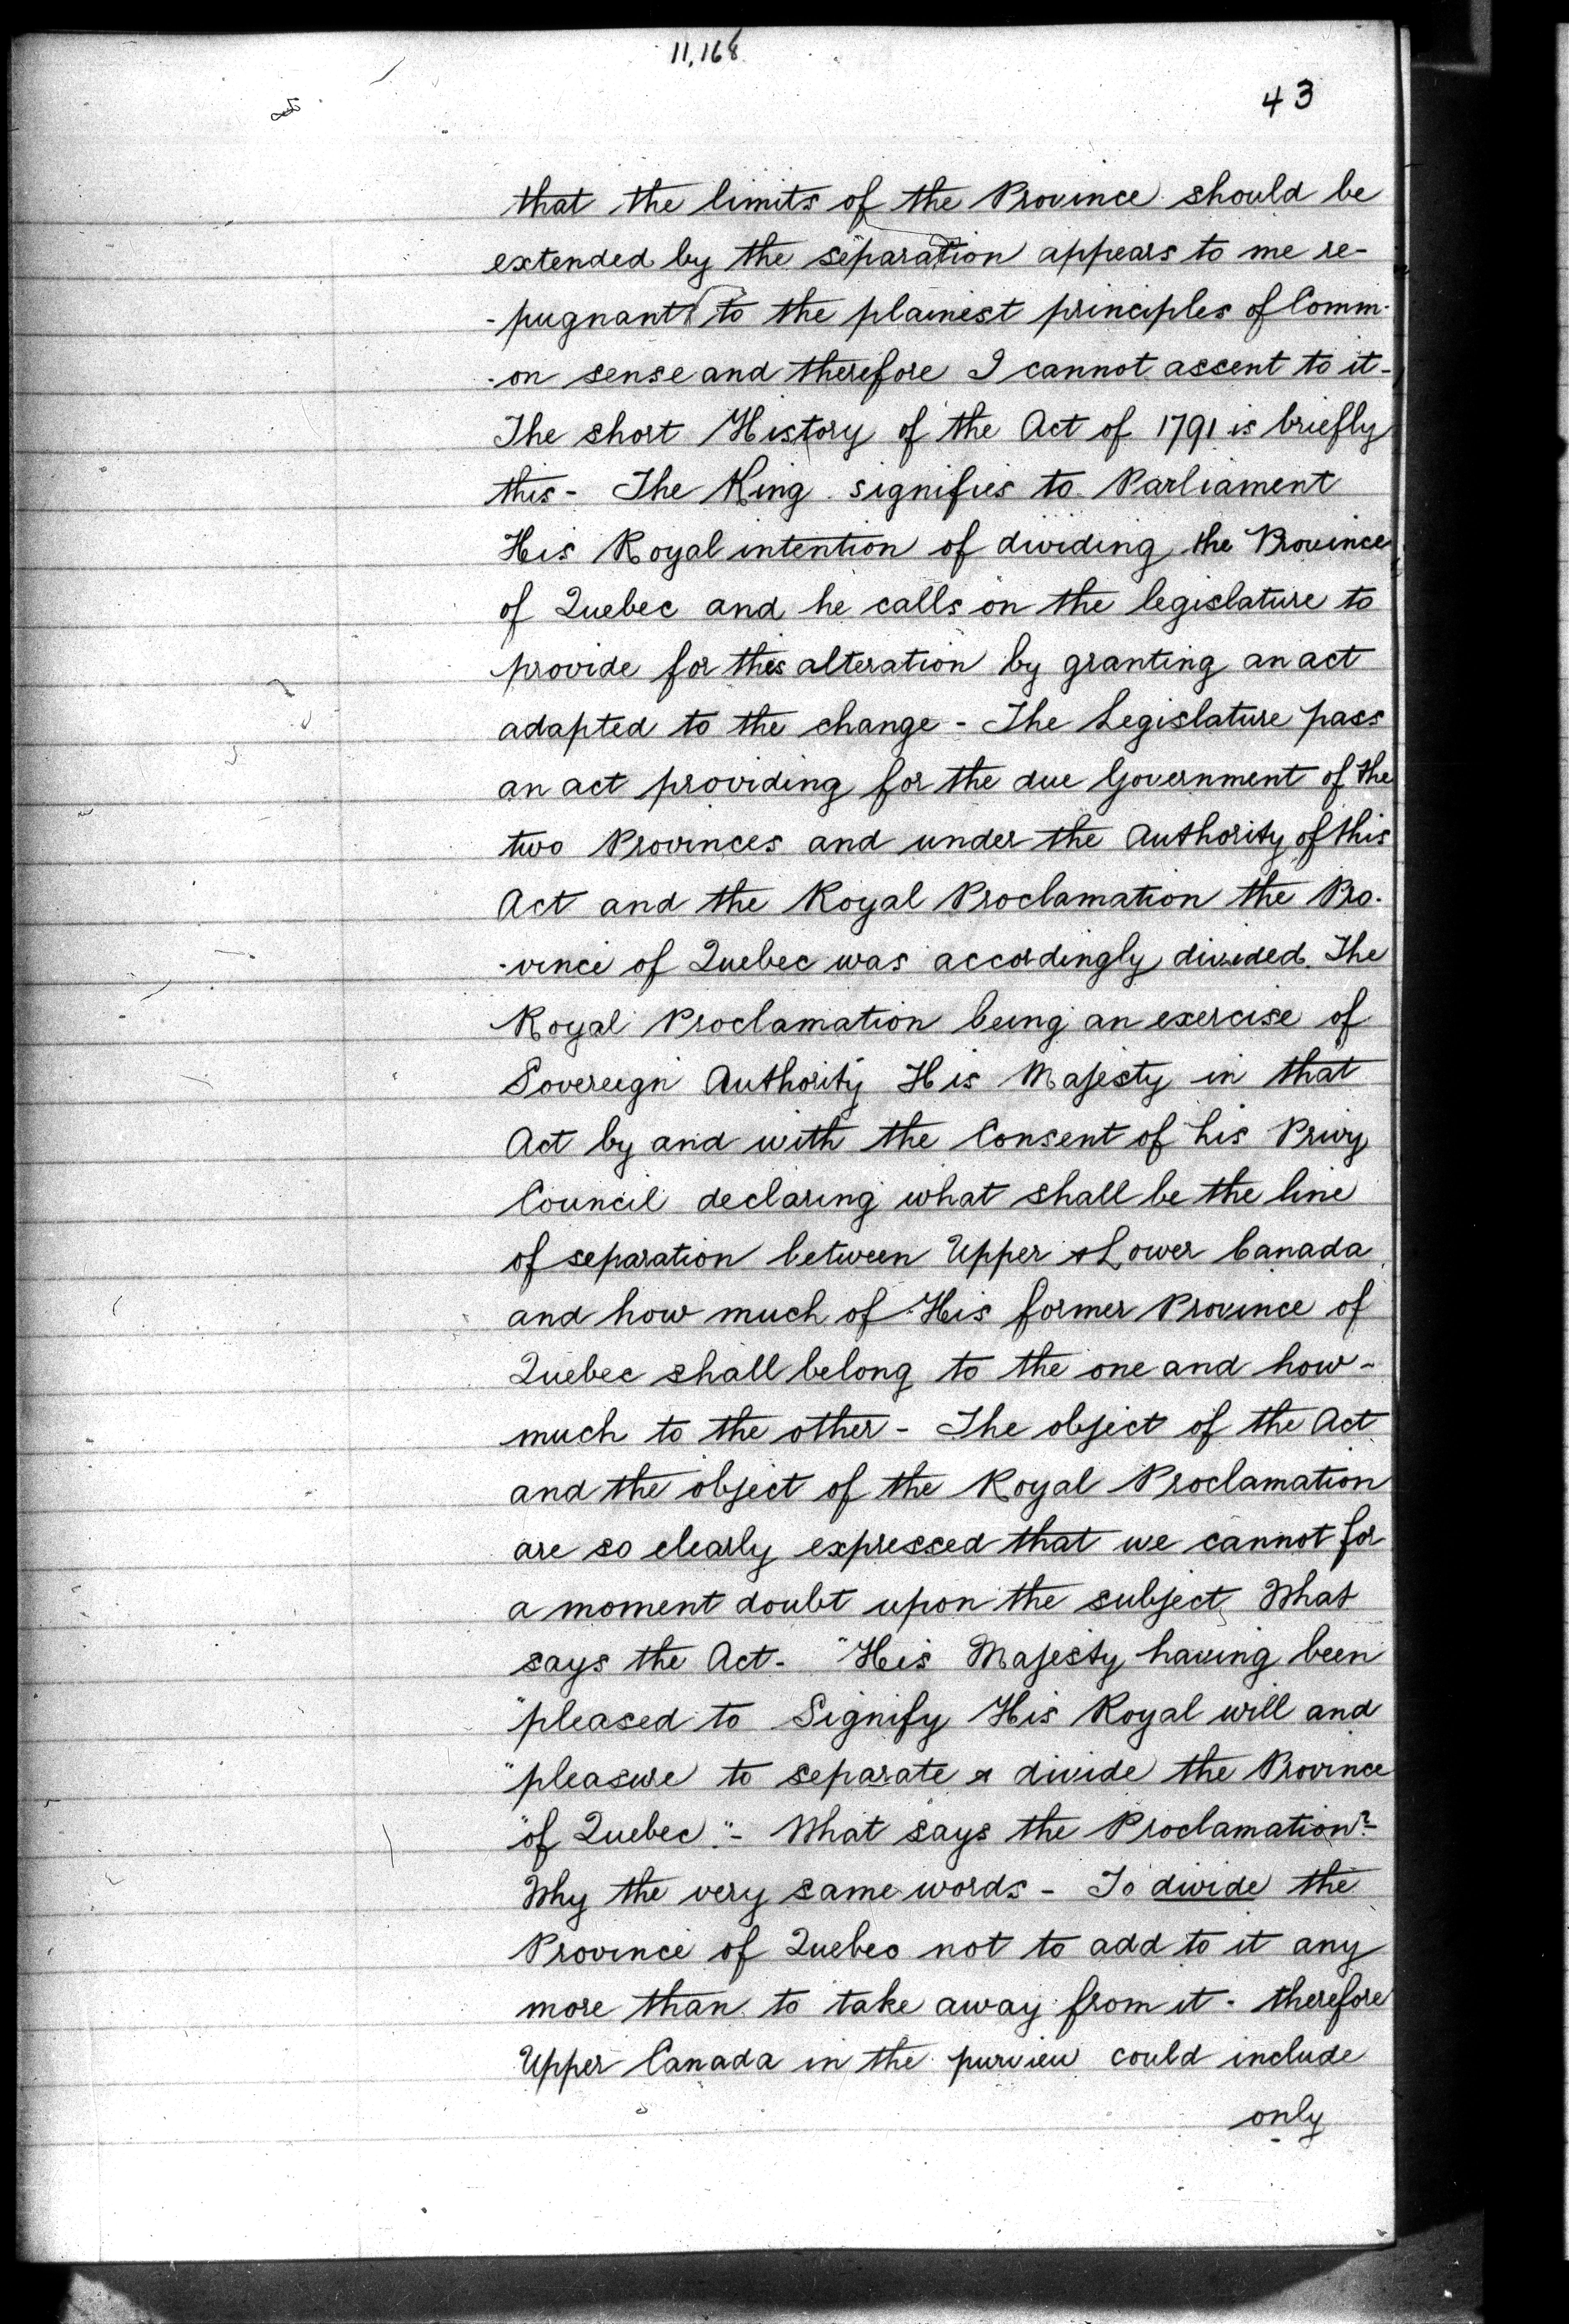 11,168
43
that the limits of the Province should be
extended by the separation appears to me re-
-pugnant to the plainest principles of Comm-
-on sense and therefore I cannot assent to it-
The short History of the Act of 1791 is briefly
this - The King signifies to Parliament
His Royal intention of dividing the Province
of Quebec and he calls on the legislature to
provide for this alteration by granting an act
adapted to the change - The Legislature pass
an act providing for the due Government of the
two Provinces and under the Authority of this
Act and the Royal Proclamation the Pro-
-vince of Quebec was accordingly divided. The
Royal Proclamation being an exercise of
Sovereign Authority His Majesty in that
Act by and with the Consent of his Privy
Council declaring what shall be the line
of separation between Upper & Lower Canada
and how much of His former Province of
Quebec shall belong to the one and how-
much to the other - The object of the Act
and the object of the Royal Proclamation
are so clearly expressed that we cannot for
a moment doubt upon the subject What
says the Act - "His Majesty having been
"pleased to Signify His Royal will and
"pleasure to separate & divide the Province
"of Quebec." - What says the Proclamation? -
Why the very same words - To divide the
Province of Quebec not to add to it any
more than to take away from it - therefore
Upper Canada in the purview could include
only